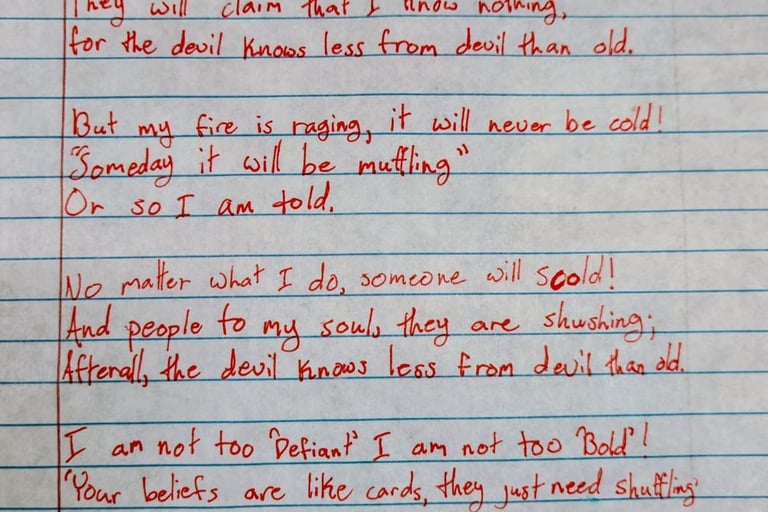 They will claim that I know nothing,
for the devil knows less from devil than old.
But my fire is raging, it will never be cold!
"Someday it will be muffling"
Or so I am told.
No matter what I do, someone will scold!
And people to my soul, they are shushing;
Afterall, the devil knows less from devil than old.
I am not too "Defiant" I am not too "Bold"!
"Your beliefs are like cards, they just need shuffling"